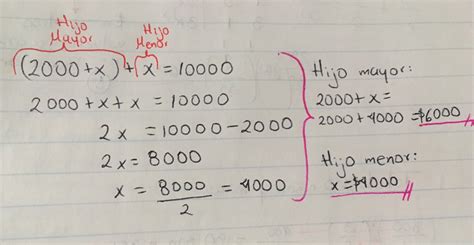 Hijo Mayor
Hijo Menor
(2000+x)+x=10000
2000+x+x=10000
2x=10000-2000
2x=8000
x=8000/2=4000
Hijo mayor:
2000+x=
2000+4000=$6000
Hijo menor:
x=$4000